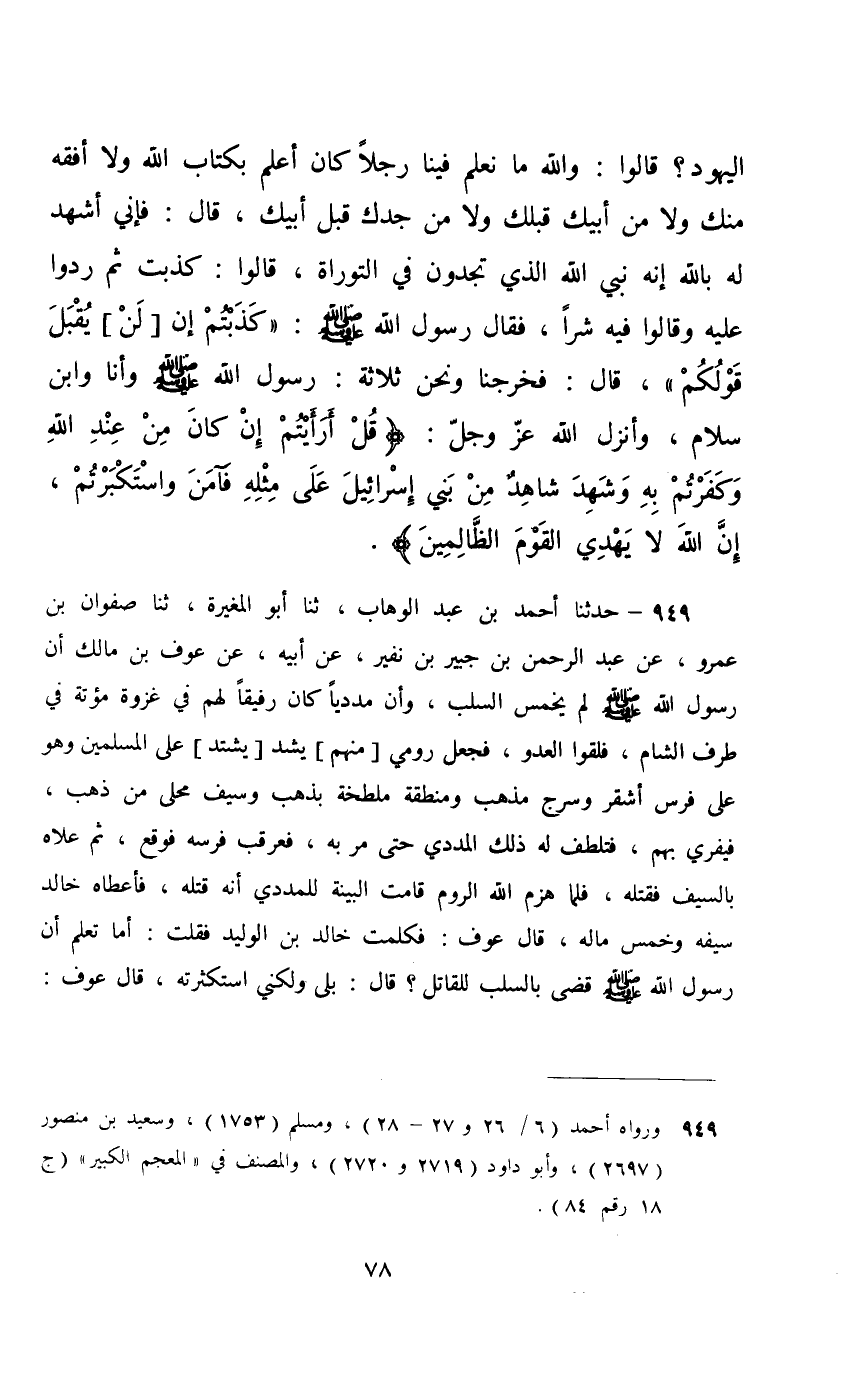 اليهود؟ قالوا : والله ما نعلم فينا رجلاً كان أعلم بكتاب الله ولا أفقه
منك ولا من أبيك قبلك ولا من جدك قبل أبيك ، قال : فإني أشهد
له بالله إنه نبي الله الذي تجدون في التوراة ، قالوا : كذبت ثم ردوا
عليه وقالوا فيه شراً ، فقال رسول الله ﷺ : «كَذَبْتُمْ إن [ لَنْ ] يُقْبَلَ
قَوْلُكُمْ» ، قال : فخرجنا ونحن ثلاثة : رسول الله ﷺ وأنا وابن
سلام ، وأنزل الله عزّ وجلّ : ﴿قُلْ أَرَأَيْتُمْ إِنْ كانَ مِنْ عِنْدِ اللهِ
وَكَفَرْتُمْ بِهِ وَشَهِدَ شاهِدٌ مِنْ بَنِي إِسْرائِيلَ عَلَى مِثْلِهِ فَآمَنَ واسْتَكْبَرْتُمْ ،
إِنَّ اللهَ لا يَهْدِي القَوْمَ الظَّالِمِينَ﴾ .
٩٤٩ – حدثنا أحمد بن عبد الوهاب ، ثنا أبو المغيرة ، ثنا صفوان بن
عمرو ، عن عبد الرحمن بن جبير بن نفير ، عن أبيه ، عن عوف بن مالك أن
رسول الله ﷺ لم يخمس السلب ، وأن مددياً كان رفيقاً لهم في غزوة مؤتة في
طرف الشام ، فلقوا العدو ، فجعل رومي [ منهم ] يشد [ يشتد ] على المسلمين وهو
على فرس أشقر وسرج مذهب ومنطقة ملطخة بذهب وسيف محلى من ذهب ،
فيفري بهم ، فتلطف له ذلك المددي حتى مر به ، فعرقب فرسه فوقع ، ثم علاه
بالسيف فقتله ، فلما هزم الله الروم قامت البينة للمددي أنه قتله ، فأعطاه خالد
سيفه وخمس ماله ، قال عوف : فكلمت خالد بن الوليد فقلت : أما تعلم أن
رسول الله ﷺ قضى بالسلب للقاتل ؟ قال : بلى ولكني استكثرته ، قال عوف :
٩٤٩ ورواه أحمد (٦/ ٢٦ و ٢٧ – ٢٨) ، ومسلم (١٧٥٣) ، وسعيد بن منصور
(٢٦٩٧) ، وأبو داود (٢٧١٩ و ٢٧٢٠) ، والمصنف في «المعجم الكبير» (ج
١٨ رقم ٨٤) .
٧٨